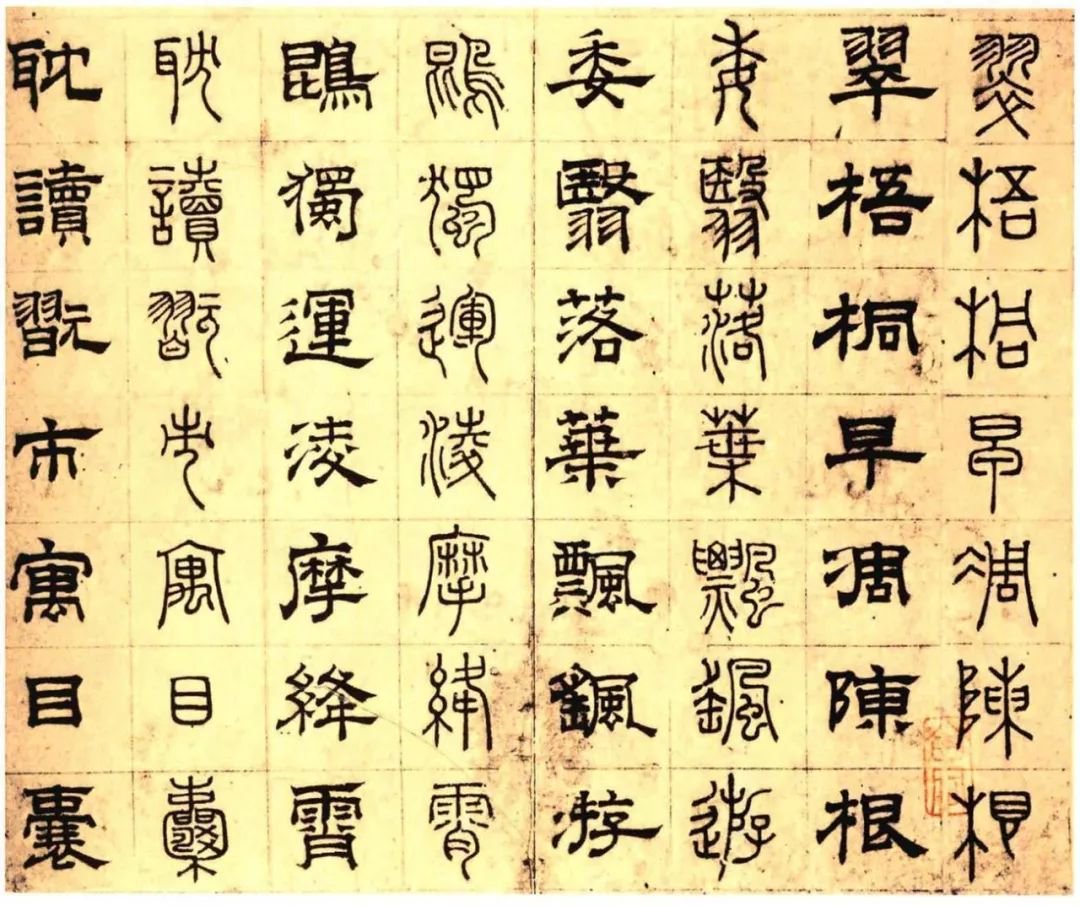 翠梧桐早凋陳根
翠梧桐早凋陳根
委翳落葉飄颻遊
委翳落葉飄颻游
鵾獨運凌摩絳霄
鵾獨運凌摩絳霄
耽讀翫市寓目囊
耽讀翫市寓目囊